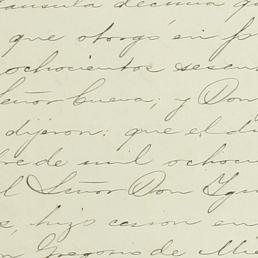 clausula decima qu
que otorgó en f
ochocientos sesen
Señor Cueva; y Don
dijeron: que el di
bre de mil ochoci
l Señor Don Ygn
s, hizo cesion en
n Gregorio de Mie